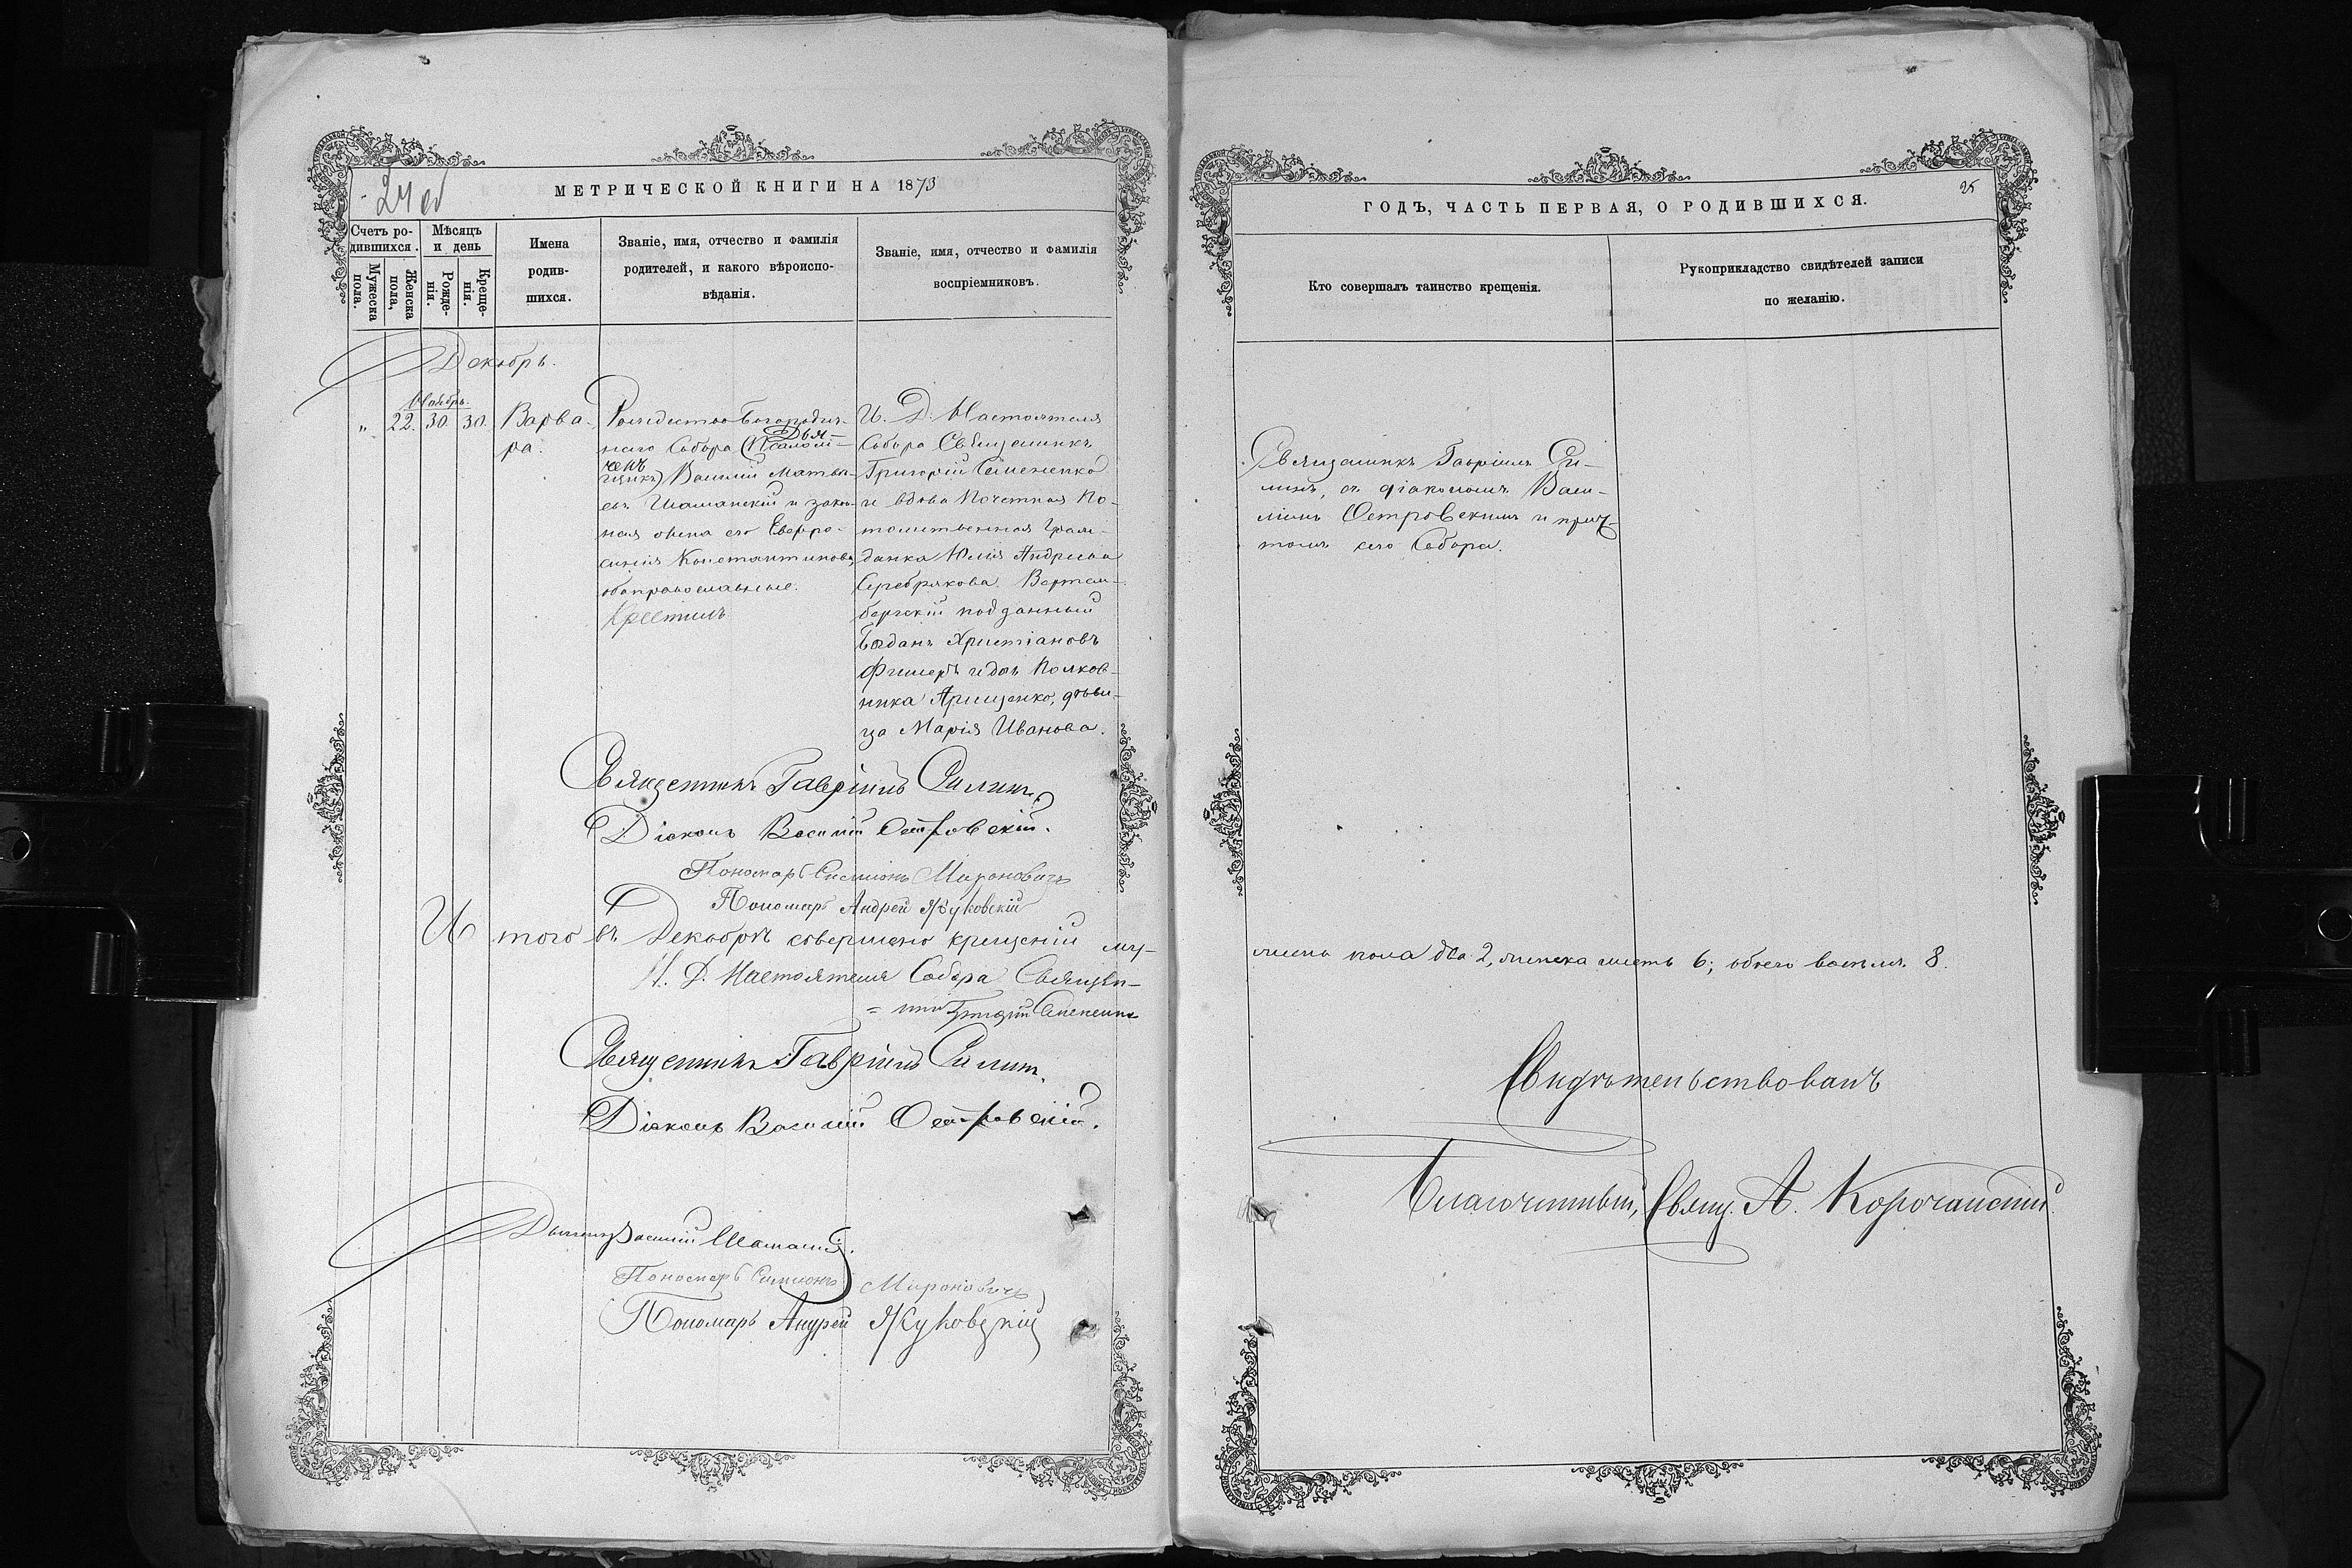 24 об
МЕТРИЧЕСКОЙ КНИГИ НА 1873
Счетъ ро-
дившихся.
Мужеска
пола.
Женска
пола,
Мѣсяцъ
и день
Рожде-
нія.
Креще-
нія.
Имена
родив-
шихся.
Званіе, имя, отчество и фамилія
родителей, и какого вѣроиспо-
вѣданія.
Званіе, имя, отчество и фамилія
воспріемниковъ.
Декабрь.
Ноябрь.
„ 22. 30. 30.
Варва-
ра.
Рождество-Богородич-
наго Собора (Псалом-
Дья-
чекъ
щикъ) Василій Матвѣ-
евъ Шаманскій и закон-
ная жена его Евфро-
синія Константинова,
оба православные.
Крестилъ
И. Д. Настоятеля
Собора Священникъ
Григорій Семененко
и вдова Почетная По-
томственная Граж-
данка Юлія Андреева
Серебрякова. Вертем-
бергскій подданный
Богданъ Христіановъ
Фишеръ и дочь Полков-
ника Арищенко, дѣви-
ца Марія Иванова.
Священникъ Гавріилъ Силинъ
Діаконъ Василій Островскій.
Пономарь Симеонъ Мироновичъ
Пономарь Андрей Жуковскій
Итого въ Декабрѣ совершено крещеній му-
И. Д. Настоятеля Собора Священ-
= никъ Григорій Семененко
Священникъ Гавріилъ Силинъ.
Діаконъ Василій Островскій.
Василій Шаманскій.
Пономарь Симеонъ Мироновичъ
Пономарь Андрей Жуковскій
25
ГОДЪ, ЧАСТЬ ПЕРВАЯ, О РОДИВШИХСЯ.
Кто совершалъ таинство крещенія.
Рукоприкладство свидѣтелей записи
по желанію.
Священникъ Гавріилъ Си-
линъ, съ діакономъ Васи-
ліемъ Островскимъ и прич-
томъ сего Собора.
жеска пола два 2, женска шесть 6; обоего восемь 8.
Свидѣтельствовалъ
Благочинный, Свящ. А. Корочанскій